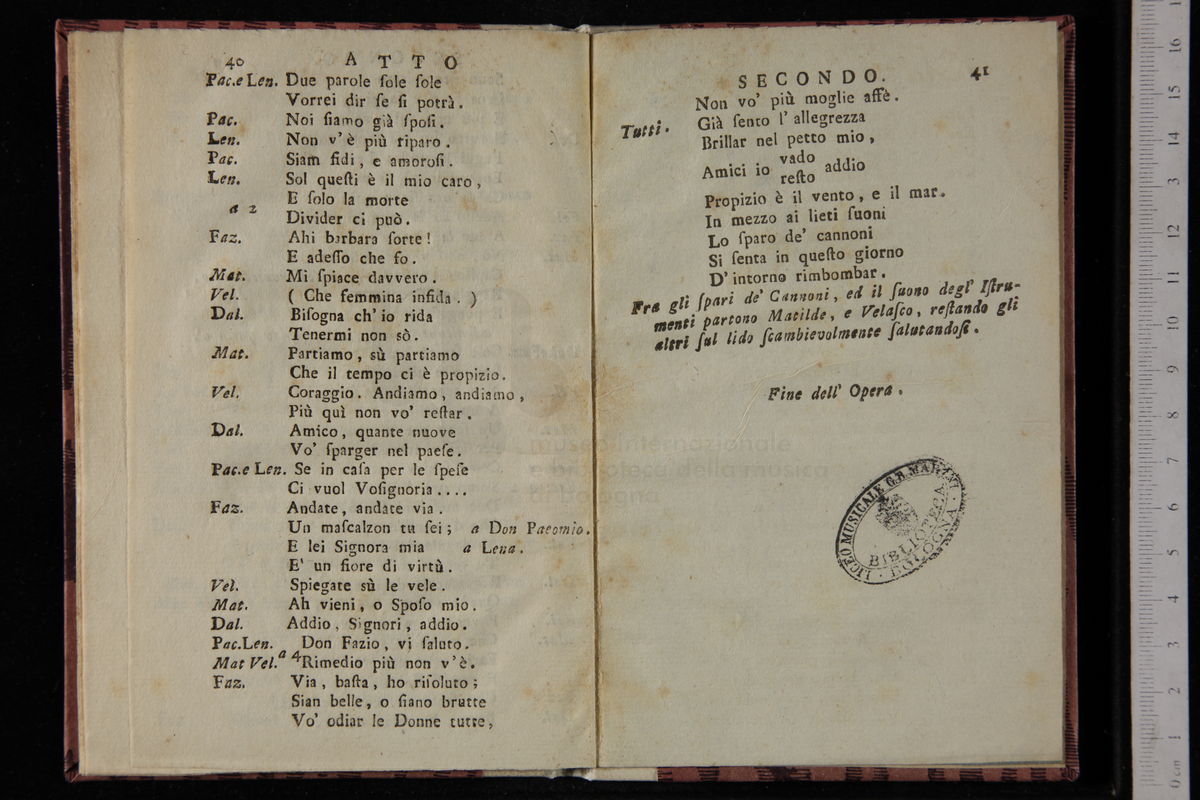 40
ATTO
Pac.e Len. Due parole ſole ſole
Vorrei dir ſe ſi potrà.
Pac. Noi ſiamo già ſpoſi.
Len. Non v'è più riparo.
Pac. Siam fidi, e amoroſi.
Len. Sol queſti è il mio caro,
E ſolo la morte
a 2
Divider ci può.
Faz. Ahi barbara ſorte!
E adeſſo che fo.
Mat. Mi ſpiace davvero.
Vel. ( Che femmina infida. )
Dal. Biſogna ch' io rida
Tenermi non sò.
Mat. Partiamo, sù partiamo
Che il tempo ci è propizio.
Vel. Coraggio. Andiamo, andiamo,
Più quì non vo' reſtar.
Dal. Amico, quante nuove
Vo' ſparger nel paeſe.
Pac.e Len. Se in caſa per le ſpeſe
Ci vuol Voſignoria....
Faz. Andate, andate via.
Un maſcalzon tu ſei; a Don Pacomio.
E lei Signora mia a Lena.
E' un fiore di virtù.
Vel. Spiegate sù le vele.
Mat. Ah vieni, o Spoſo mio.
Dal. Addio, Signori, addio.
Pac.Len. Don Fazio, vi ſaluto.
a 4
Mat Vel. Rimedio più non v'è.
Faz. Via, baſta, ho riſoluto;
Sian belle, o ſiano brutte
Vo' odiar le Donne tutte,
SECONDO.
41
Non vo' più moglie affè.
Tutti. Già ſento l' allegrezza
Brillar nel petto mio,
vado
Amici io addio
reſto
Propizio è il vento, e il mar.
In mezzo ai lieti ſuoni
Lo ſparo de' cannoni
Si ſenta in queſto giorno
D' intorno rimbombar.
Fra gli ſpari de' Cannoni, ed il ſuono degl' Iſtru-
menti partono Matilde, e Velaſco, reſtando gli
altri ſul lido ſcambievolmente ſalutandoſi.
Fine dell' Opera.
museo internazionale
e biblioteca della musica
di bologna
LICEO MUSICALE G.B. MARTINI
BIBLIOTECA
BOLOGNA
0 cm 1 2 3 4 5 6 7 8 9 10 11 12 13 14 15 16